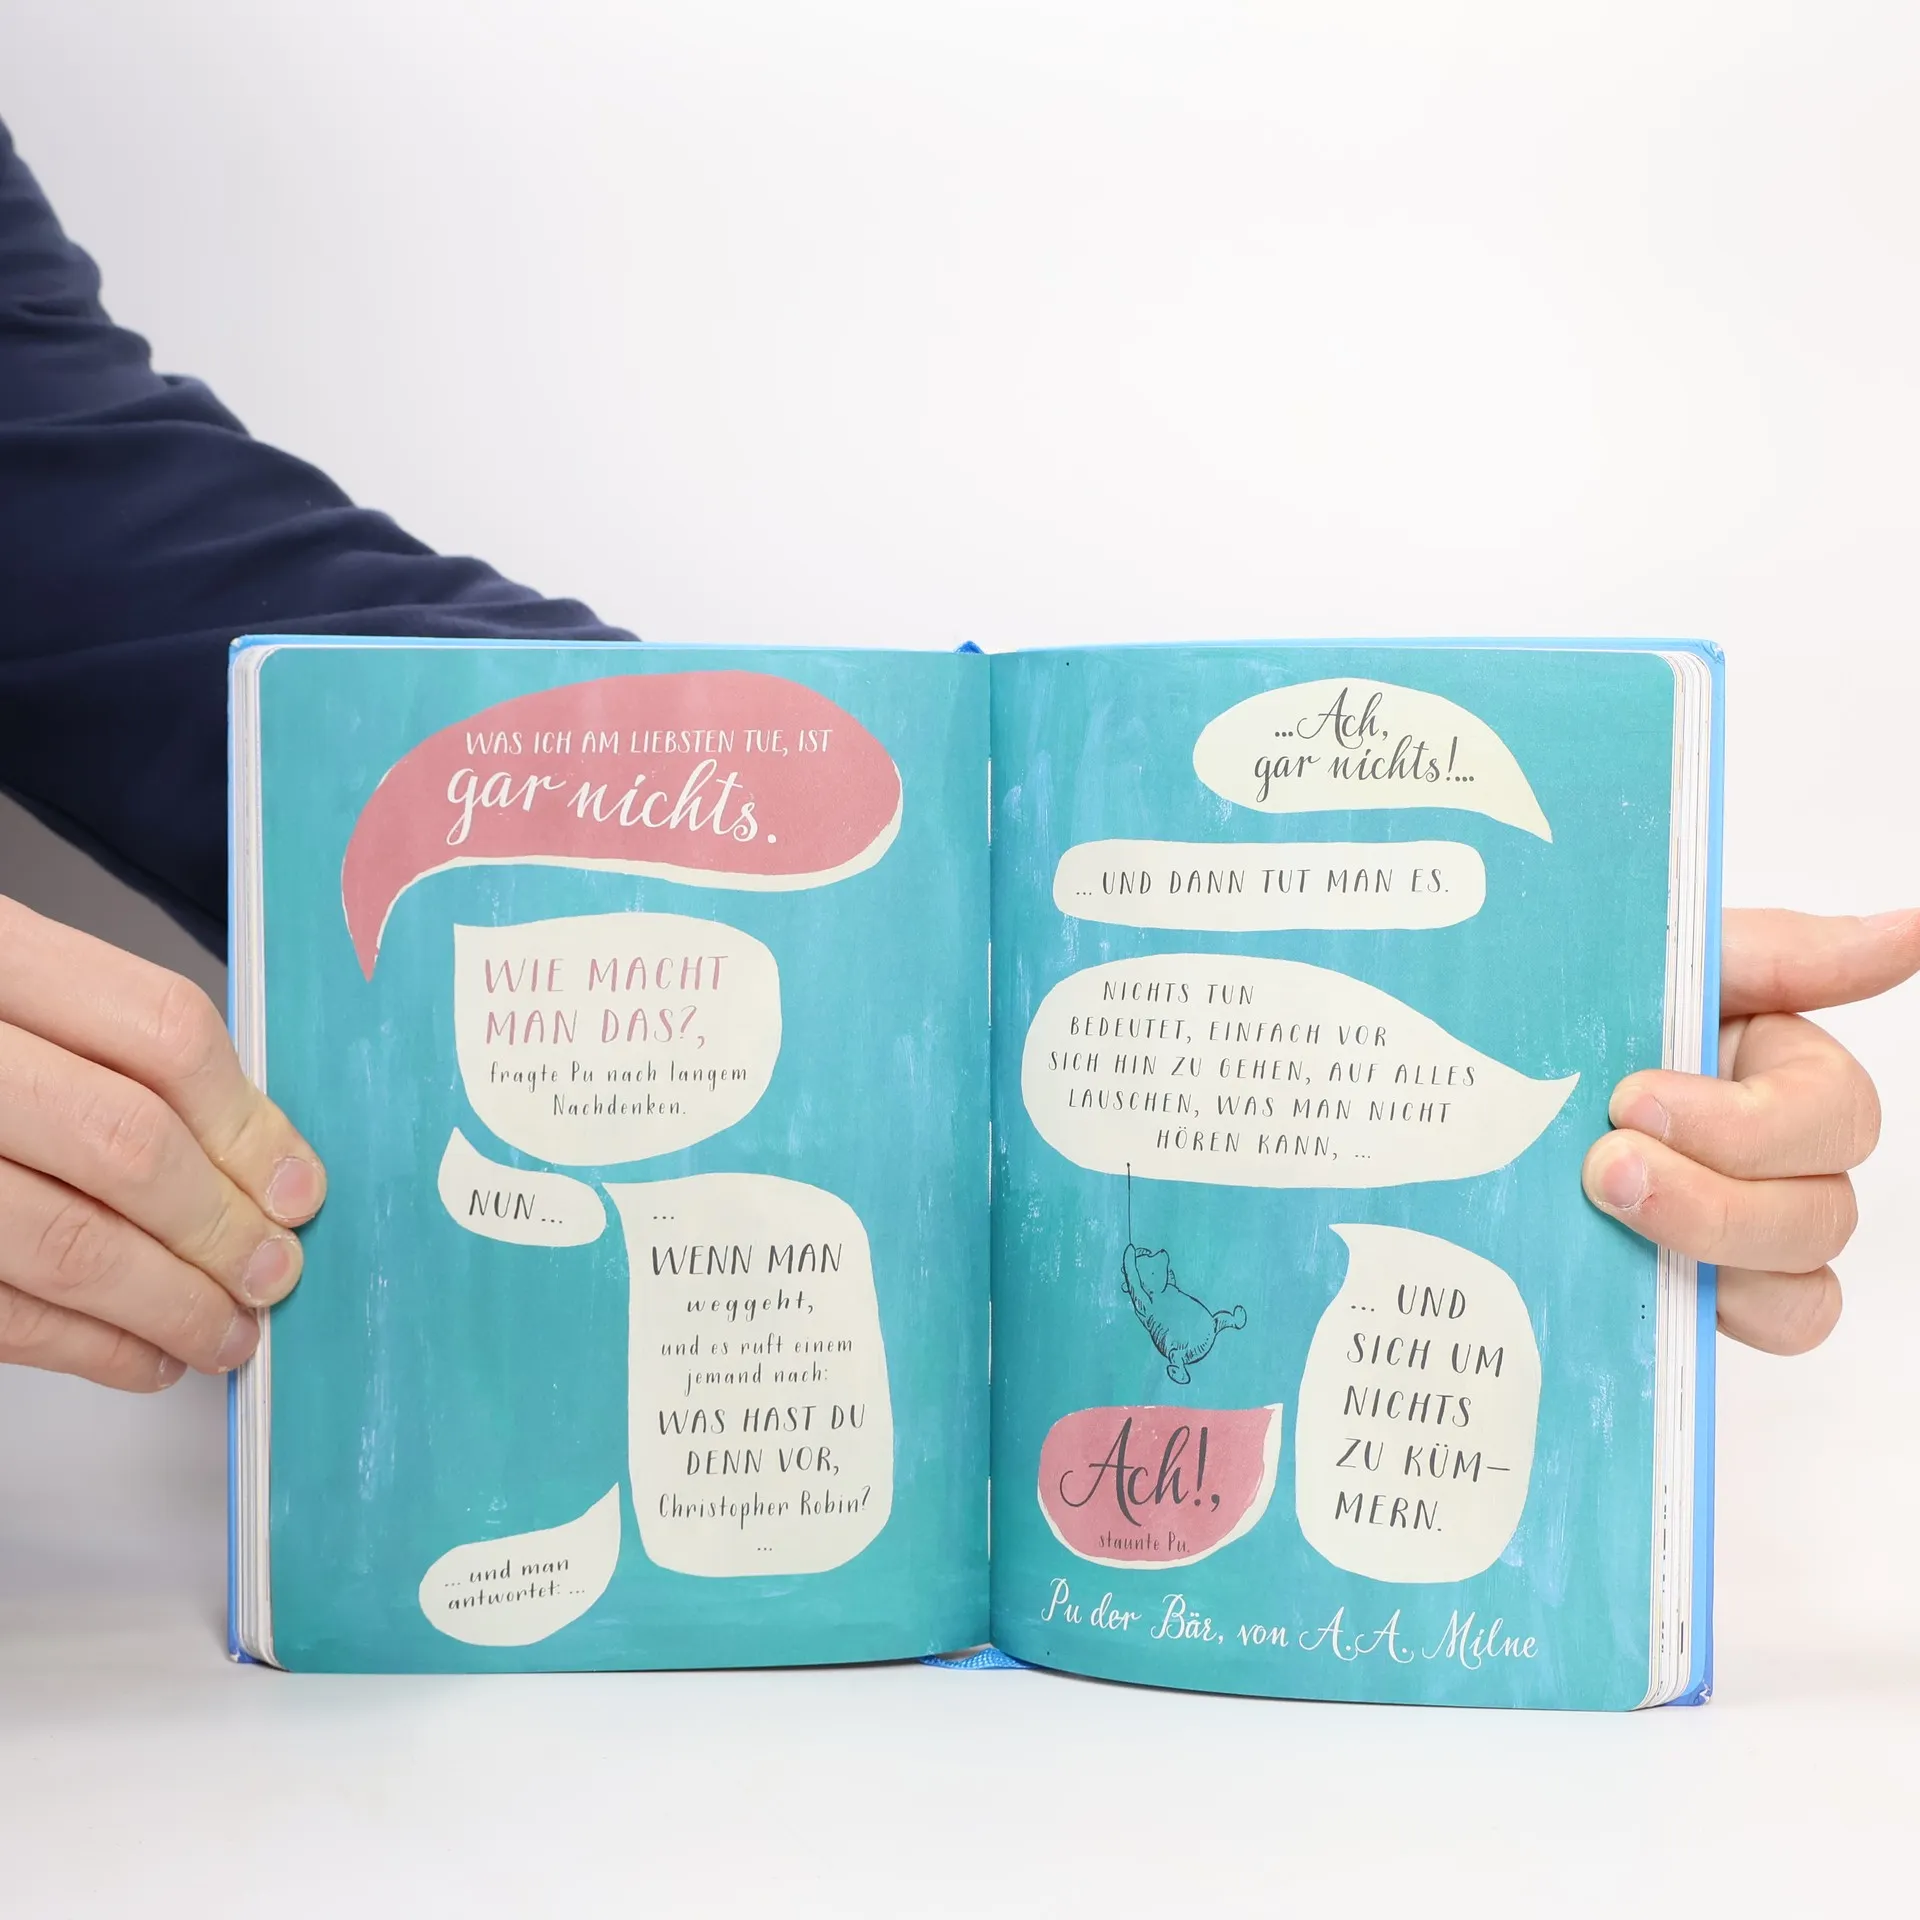 WAS ICH AM LIEBSTEN TUE, IST
gar nichts.
WIE MACHT
MAN DAS?,
fragte Pu nach langem
Nachdenken.
NUN...
...
WENN MAN
weggeht,
und es ruft einem
jemand nach:
WAS HAST DU
DENN VOR,
Christopher Robin?
...
... und man
antwortet: ...
...Ach,
gar nichts!...
... UND DANN TUT MAN ES.
NICHTS TUN
BEDEUTET, EINFACH VOR
SICH HIN ZU GEHEN, AUF ALLES
LAUSCHEN, WAS MAN NICHT
HÖREN KANN, ...
... UND
SICH UM
NICHTS
ZU KÜM-
MERN.
Ach!,
staunte Pu.
Pu der Bär, von A. A. Milne